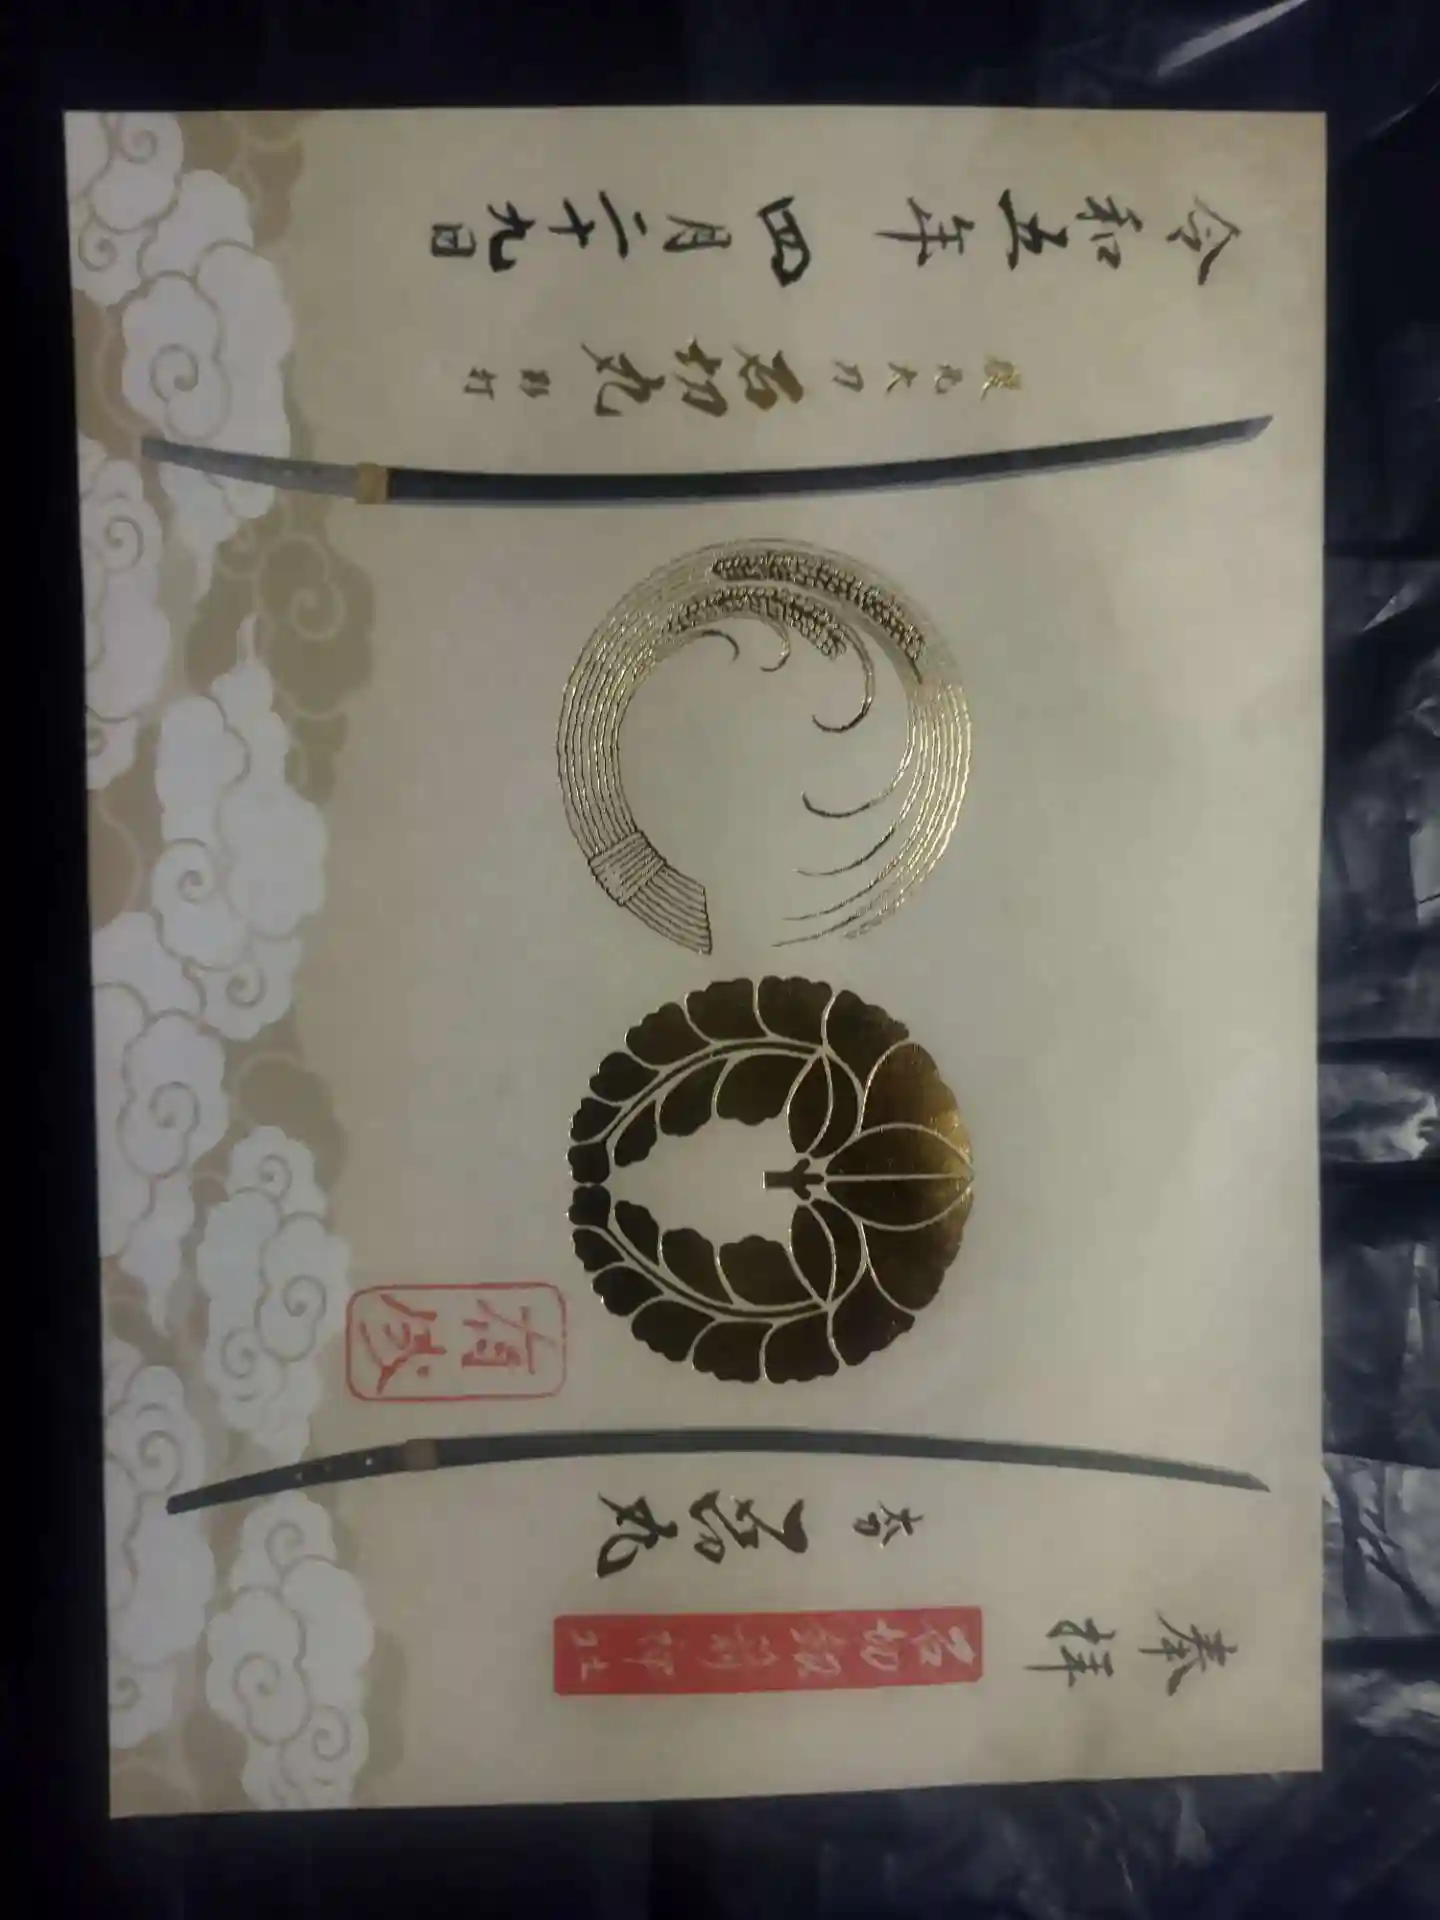 奉拝
石切劔箭神社
太刀 石切丸
復元太刀 石切丸 影打
令和五年 四月二十九日